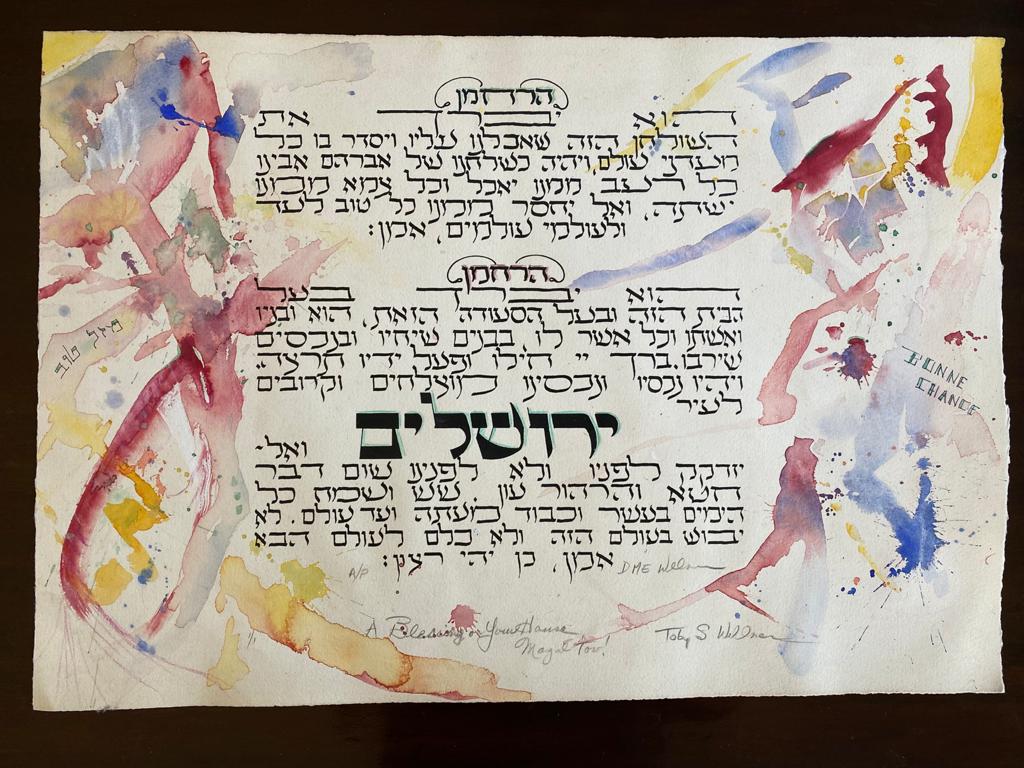 הרחמן
הוא יברך את
השולחן הזה שאכלנו עליו, ויסדר בו כל
מעדני עולם, ויהיה כשלחנו של אברהם אבינו
כל רעב ממנו יאכל וכל צמא ממנו
ישתה, ואל יחסר ממנו כל טוב לעד
ולעולמי עולמים, אמן:
הרחמן
הוא יברך בעל
הבית הזה ובעל הסעודה הזאת, הוא ובניו
ואשתו וכל אשר לו, בבנים שיחיו ובנכסים
שירבו. ברך יי חילו ופעל ידיו תרצה.
ויהיו נכסיו ונכסינו מוצלחים וקרובים
לעיר
ירושלים
ואל
יזדקק לפניו ולא לפנינו שום דבר
חטא והרהור עון, שש ושמח כל
הימים בעשר וכבוד מעתה ועד עולם. לא
יבוש בעולם הזה ולא כלם לעולם הבא
אמן, כן יהי רצון:
מזל טוב
BONNE
CHANCE
A/P
DME Wellman
1/1
A Blessing on Your House
Mazal Tov!
Toby S Willner